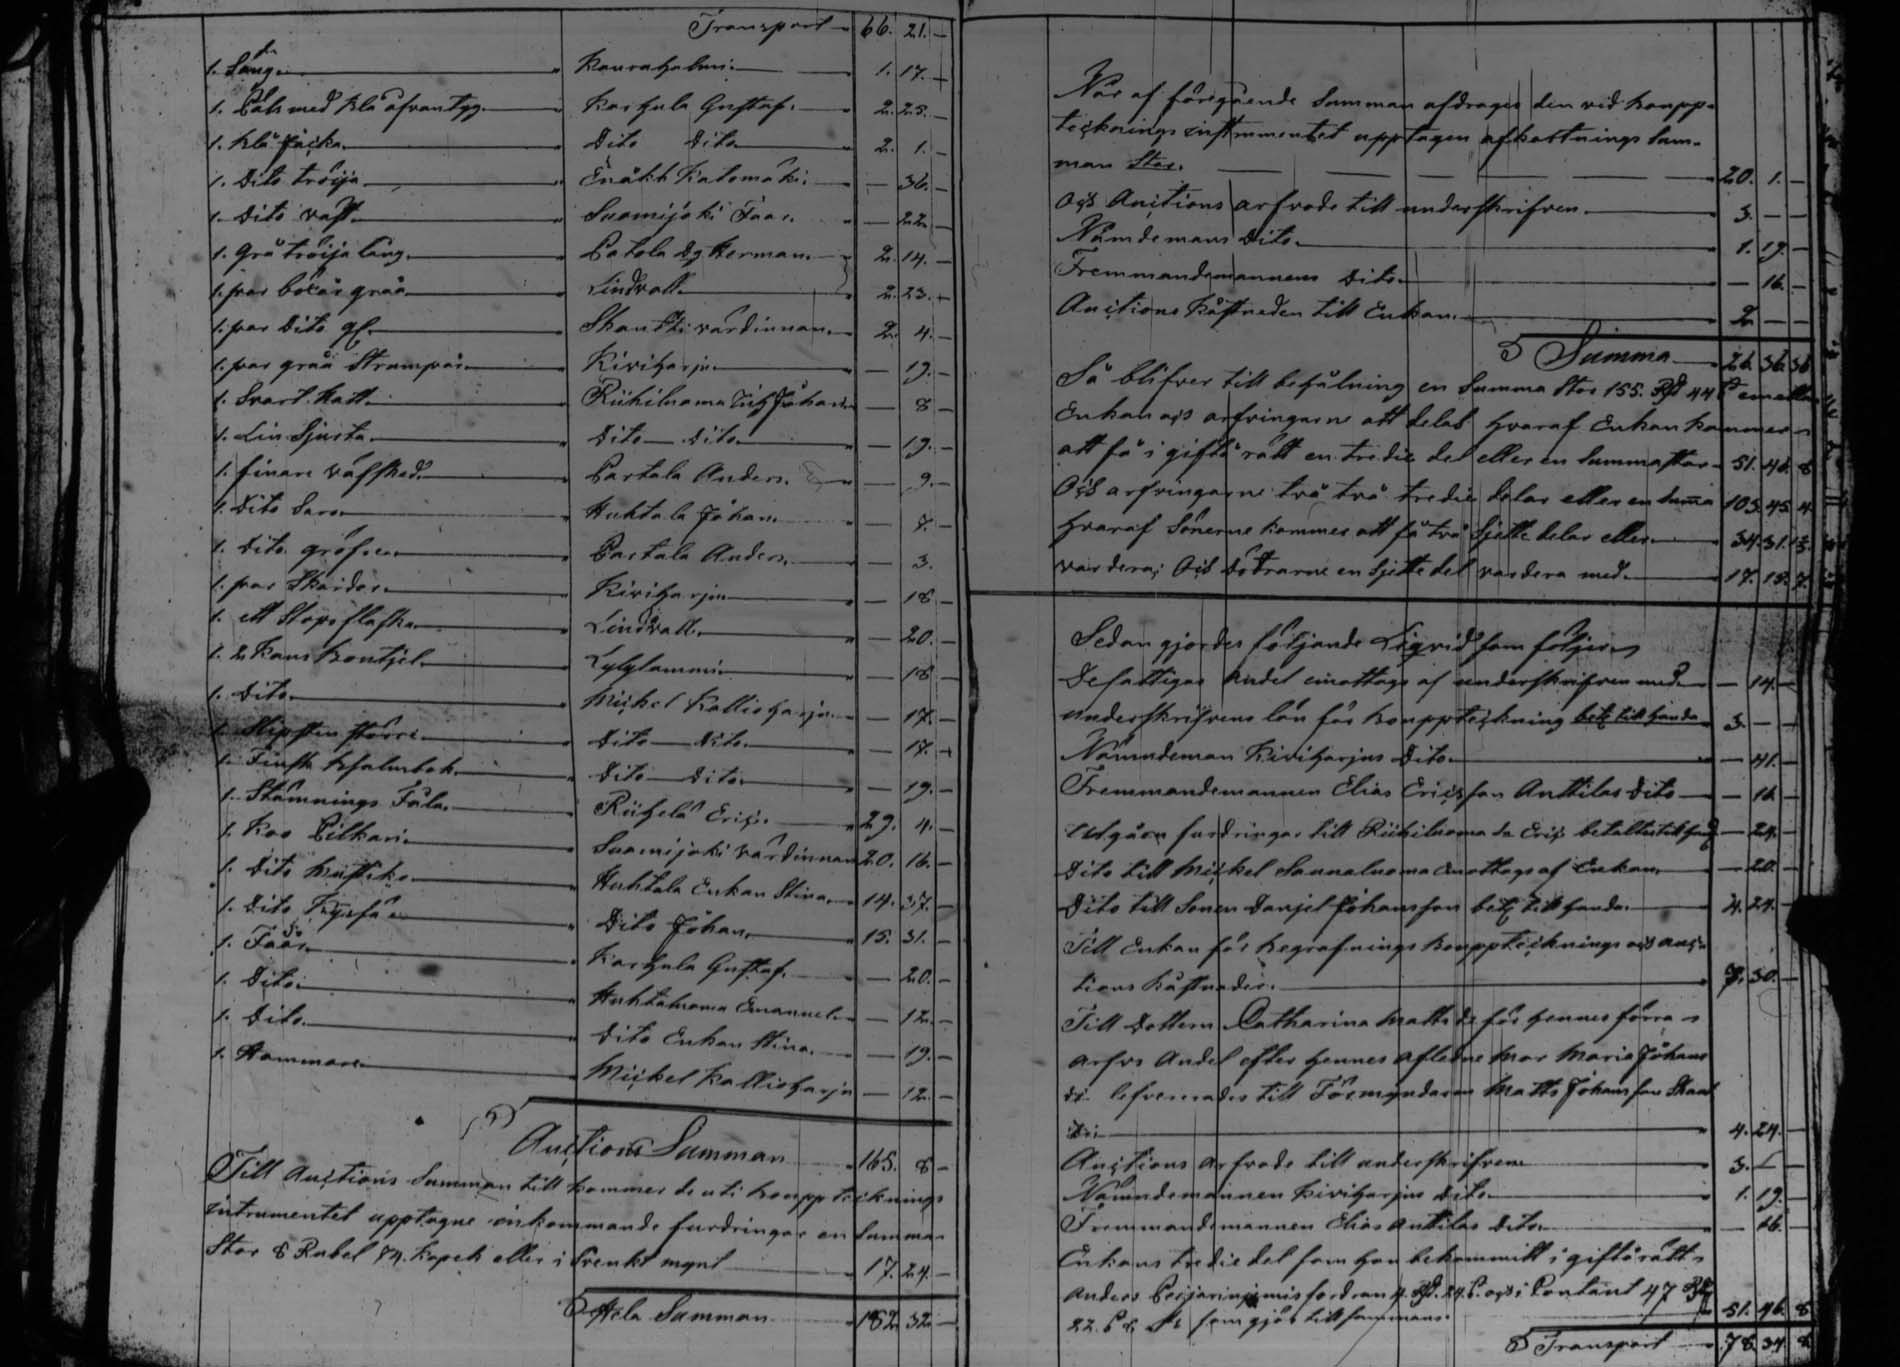 Transport 66. 21. -
1. Säng Kauraholmi 1. 17. -
1. Päls med Klä åfvantyg Karhula Gustaf 2. 25. -
1. Klä Jacka Dito Dito 2. 1. -
1. Dito tröija Enäkk Katomäki - 36. -
1. Dito väst Suomijoki Faar - 22 -
1. Grå tröija lång Latola Dr Herman 2. 14. -
1. par böxor gråa Lindvall 2. 23. -
1. par Dito Skantsi värdinnan 2. 4. -
1. par gråa Strumpor Kiviharju - 19. -
1. Svart Hatt Riihiluoma Johan - 8 -
1. Lin Sjorta Dito Dito - 19. -
1. finare väfsked Partala Anders - 9. -
1. Dito Dito Huhtala Johan - 7. -
1. Dito gröfre Partala Anders - 3.
1. par Skridor Kiviharju - 18 -
1. ett Stops flaska Lindvall - 20. -
1. 2 Kans Bouteil Lylylammi - 18 -
1. Dito Mickel Kallioharju - 17. -
1. Slipsten större Dito Dito - 17. -
1. Finsk Psalmbok Dito Dito - 19. -
1. Stämnings Fåla Riihelä Eric 29. 4. -
1. Koo Pilkari Suomijoki värdinnan 20. 16. -
1. Dito Mustike Huhtala Enkan Stina 14. 37. -
1. Dito Dito Johan 15. 31. -
1. Fåår Karhula Gustaf - 20. -
1. Dito Huhtaluoma Emanuel - 12. -
1. Dito Dito Enkan Stina - 19. -
1. Hammare Mickel Kallioharju - 12. -
Auctions Summan 165. 8 -
Till Auctions Summan till kommer de uti boupptecknings
intrumentet upptagne inkommande fordringar en Summa
Stor 8 Rubel 74. Kopek eller i Svenkt mynt 17. 24. -
Hela Summan 182. 32. -
När af föregående Summan afdrages den vid boupp-
tecknings instrumentet upptagen afkortnings sum-
man Stor 20. 1. -
och Auctions arfvode till underskrifven 3. - -
Nämdemans Dito 1. 19. -
Fremmandemannens Dito - 16. -
Auctions Kåstnaden till Enkan 2 - -
Summa 26. 36. 36
Så blifver till behålning en Summa Stor 155. Rd 44 emellan
Enkan och arfvingarne att delas hvaraf Enkan kommer
att få i giftorätt en tredie del eller en summa stor 51. 46. 8
Och arfvingarne två två tredie delar eller en suma 103. 45. 4.
hvaraf Sönerne kommer att få två Sjette delar eller 34. 31.
vardera; Och Döttrarne en Sjette del vardera med 17. 15. 7.
Sedan gjordes följande Liqvid som följer
De fattigas Andel emottogs af underskrifven med - 14. -
underskrifvens lön för bouppteckning betl till handa 3. - -
Nämndeman Kiviharjus Dito - 41. -
Fremmandemannen Elias Ericsson Anttilas Dito - 16 -
utgåen fordringar till Riihiluoma Eric betaltes till hand - 24. -
Dito till Mickel Saunaluoma emottogs af Enkan - 20. -
Dito till Sonen Danjel Johansson betl till handa 4. 24. -
Till Enkan för begrafnings bouppteknings och auc-
tions Kåstnader 7. 30. -
Till Dottern Catharina Matts dr för hennes förra
arfvs Andel efter hennes afledne Mor Maria Johans
dr lefvererades till Förmyndaren Matts Johansson Skant
si 4. 24. -
Auctions arfvode till underskrifven 3. - -
Nämndemannen Kiviharjus Dito 1. 19. -
Fremmandemannen Elias Anttilas Dito - 16. -
Enkans tredie del som hon bekommitt i giftorätt
Anders fordran 4. Rd. 24. och i Contant 47 Rd
22. 8 som gjör tillsammans 51. 46. 8
Transport 78. 34. 8